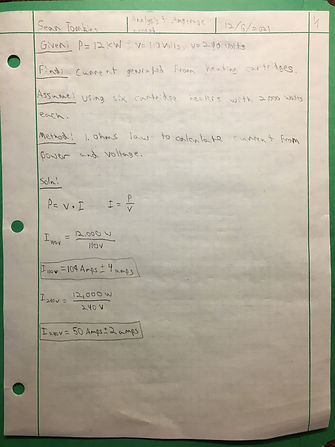 Sean Analysis 12/5/2021 1/1
Given: P=12kW, V=110 volts, V=240 volts
Find: Current generated from heating cartridges.
Assume: Using six cartridge heaters with 2000 watts
each.
Method: 1. ohms law to calculate current from
power and voltage.
Soln:
P= V • I I = P/V
I110V = 12,000 W / 110V
I110V = 109 Amps ± 4 amps
I240V = 12,000 W / 240 V
I240V = 50 Amps ± 2 amps